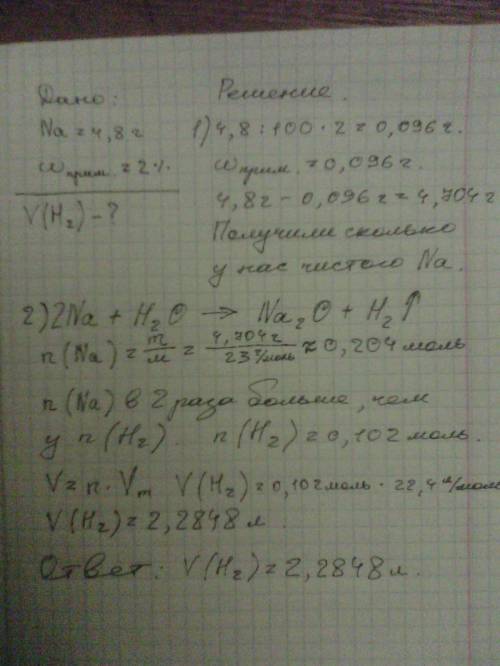 Дано:
Na = 4,8 г
ωприм. = 2%
V(H₂) - ?
Решение.
1) 4,8 : 100 · 2 = 0,096 г.
ωприм. = 0,096 г.
4,8 г - 0,096 г = 4,704 г
Получили сколько
у нас чистого Na.
2) 2Na + H₂O → Na₂O + H₂↑
n(Na) = m/м = 4,704 г/23 г/моль ≈ 0,204 моль
n(Na) в 2 раза больше, чем
у n(H₂). n(H₂) = 0,102 моль.
V = n · Vm V(H₂) = 0,102 моль · 22,4 л/моль
V(H₂) = 2,2848 л.
Ответ: V(H₂) = 2,2848 л.